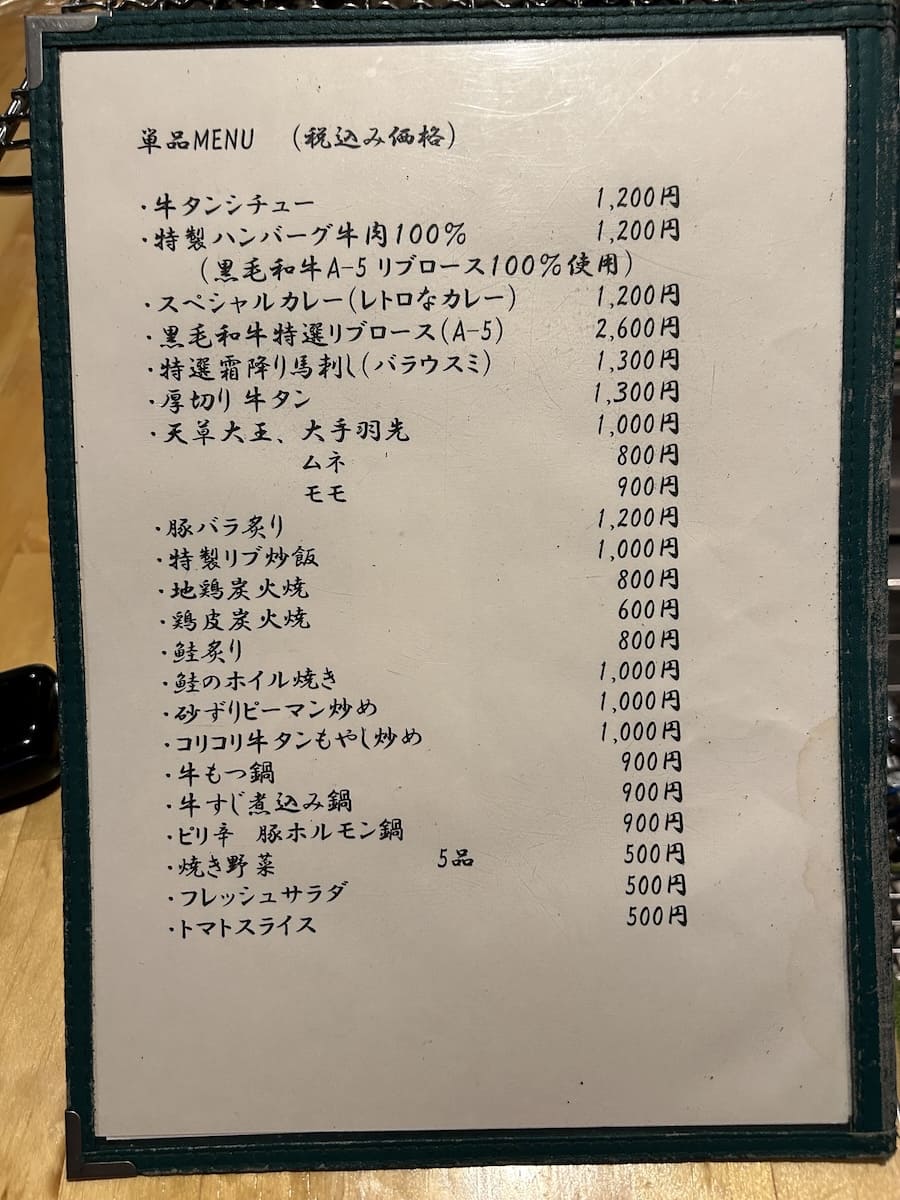 単品MENU （税込み価格）
・牛タンシチュー 1,200円
・特製ハンバーグ牛肉100% 1,200円
（黒毛和牛A-5リブロース100%使用）
・スペシャルカレー（レトロなカレー） 1,200円
・黒毛和牛特選リブロース（A-5） 2,600円
・特選霜降り馬刺し（バラウスミ） 1,300円
・厚切り牛タン 1,300円
・天草大王、大手羽先 1,000円
ムネ 800円
モモ 900円
・豚バラ炙り 1,200円
・特製リブ炒飯 1,000円
・地鶏炭火焼 800円
・鶏皮炭火焼 600円
・鮭炙り 800円
・鮭のホイル焼き 1,000円
・砂ずりピーマン炒め 1,000円
・コリコリ牛タンもやし炒め 1,000円
・牛もつ鍋 900円
・牛すじ煮込み鍋 900円
・ピリ辛 豚ホルモン鍋 900円
・焼き野菜 5品 500円
・フレッシュサラダ 500円
・トマトスライス 500円